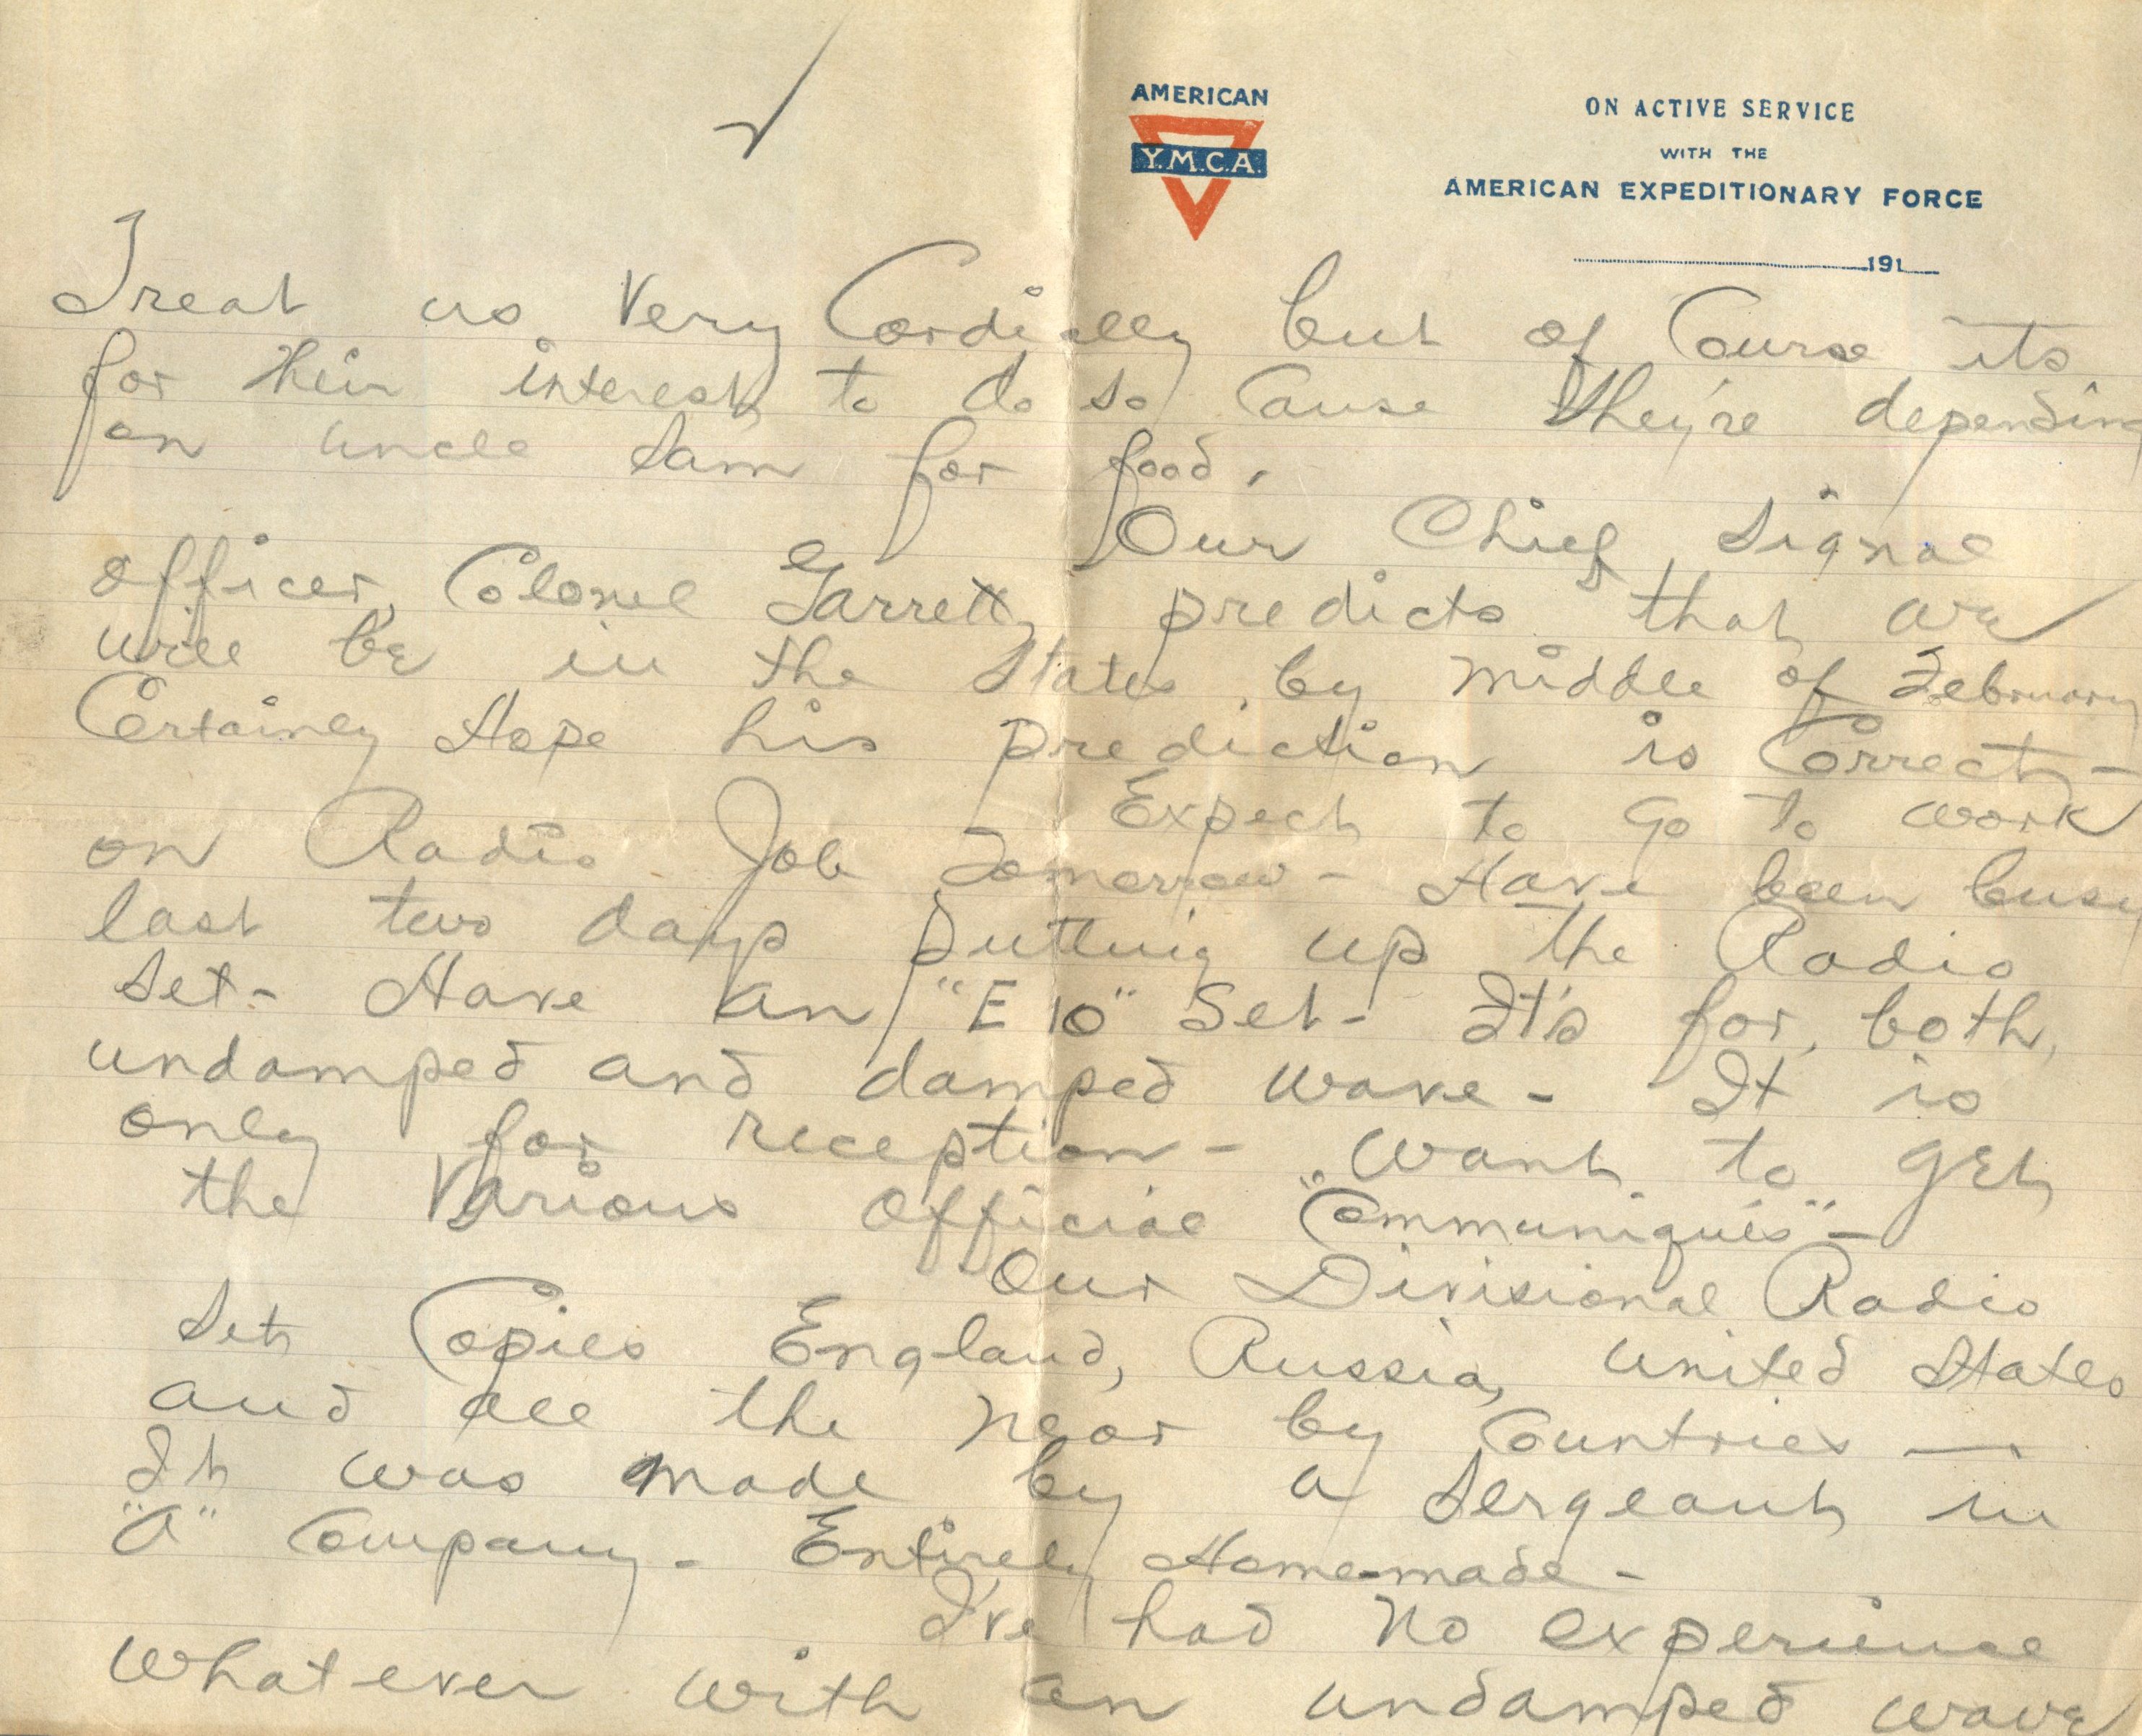 AMERICAN
Y.M.C.A.
ON ACTIVE SERVICE
WITH THE
AMERICAN EXPEDITIONARY FORCE
191
Treat us very Cordially but of Course its
for their interest to do so Cause they're depending
on Uncle Sam for food.
Our Chief Signal
Officer, Colonel Garrett, predicts that we
will be in the States by middle of February
Certainly Hope his prediction is Correct -
Expect to go to work
on Radio Job Tomorrow - Have been busy
last two days putting up the Radio
Set - Have an "E 10" Set - It's for both,
undamped and damped wave - It is
only for reception - Want to get
the various Official "Communiqués" -
Our Divisional Radio
Set Copies England, Russia, United States
and all the near by Countries —
It was made by a Sergeant in
"A" Company - Entirely Home-made -
I've had no experience
whatever with an undamped wave